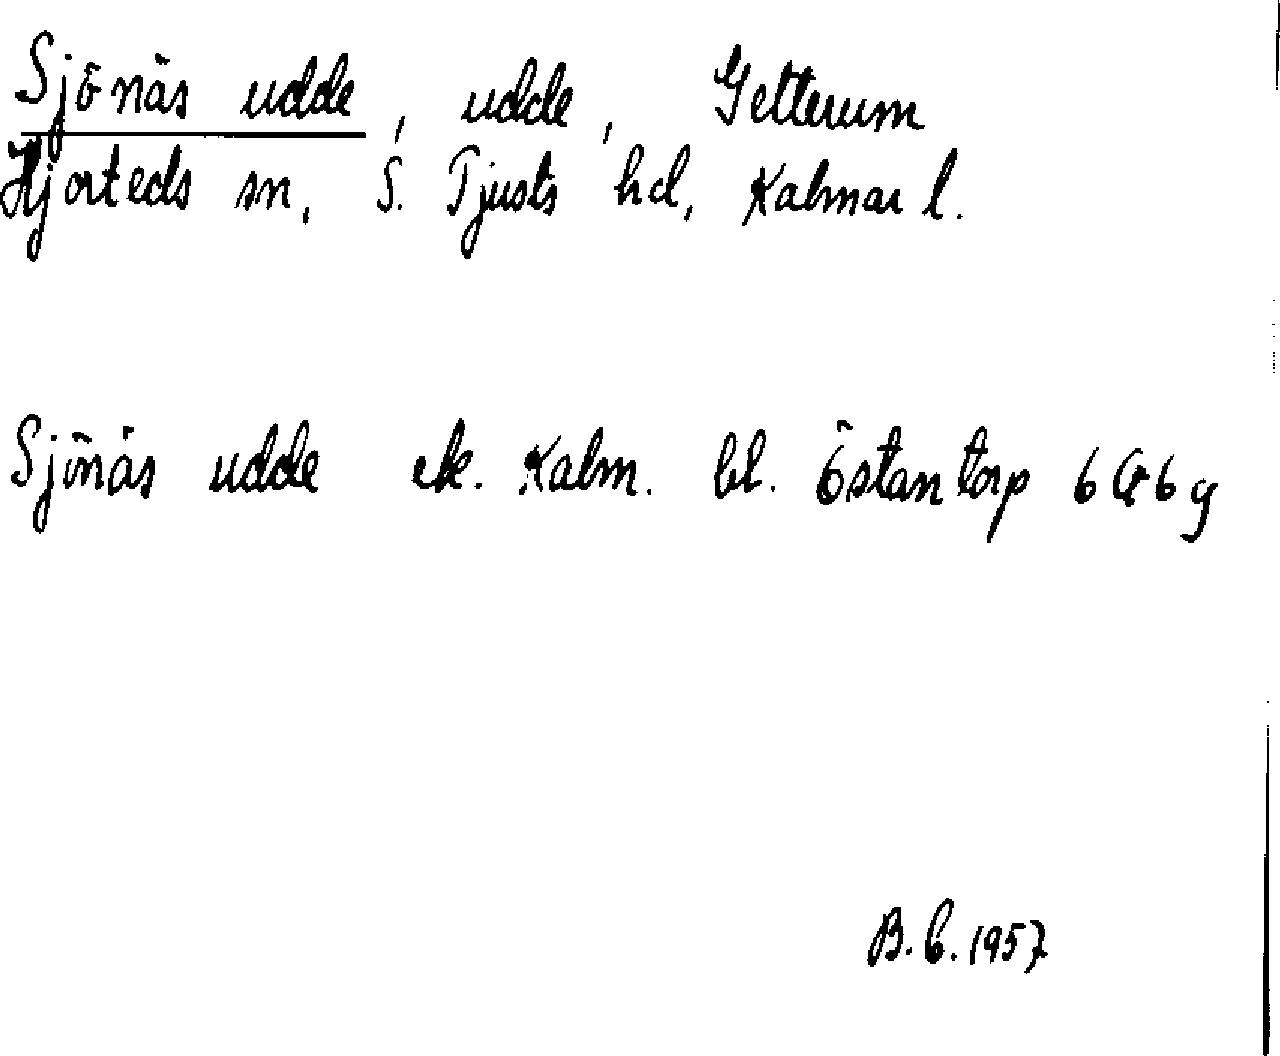 Sjönäs udde, udde, Getterum
Hjorteds sn, S. Tjusts hd, Kalmar l.
Sjönäs udde ek. Kalm. bl. Östantorp 6G6g
B.C. 1957